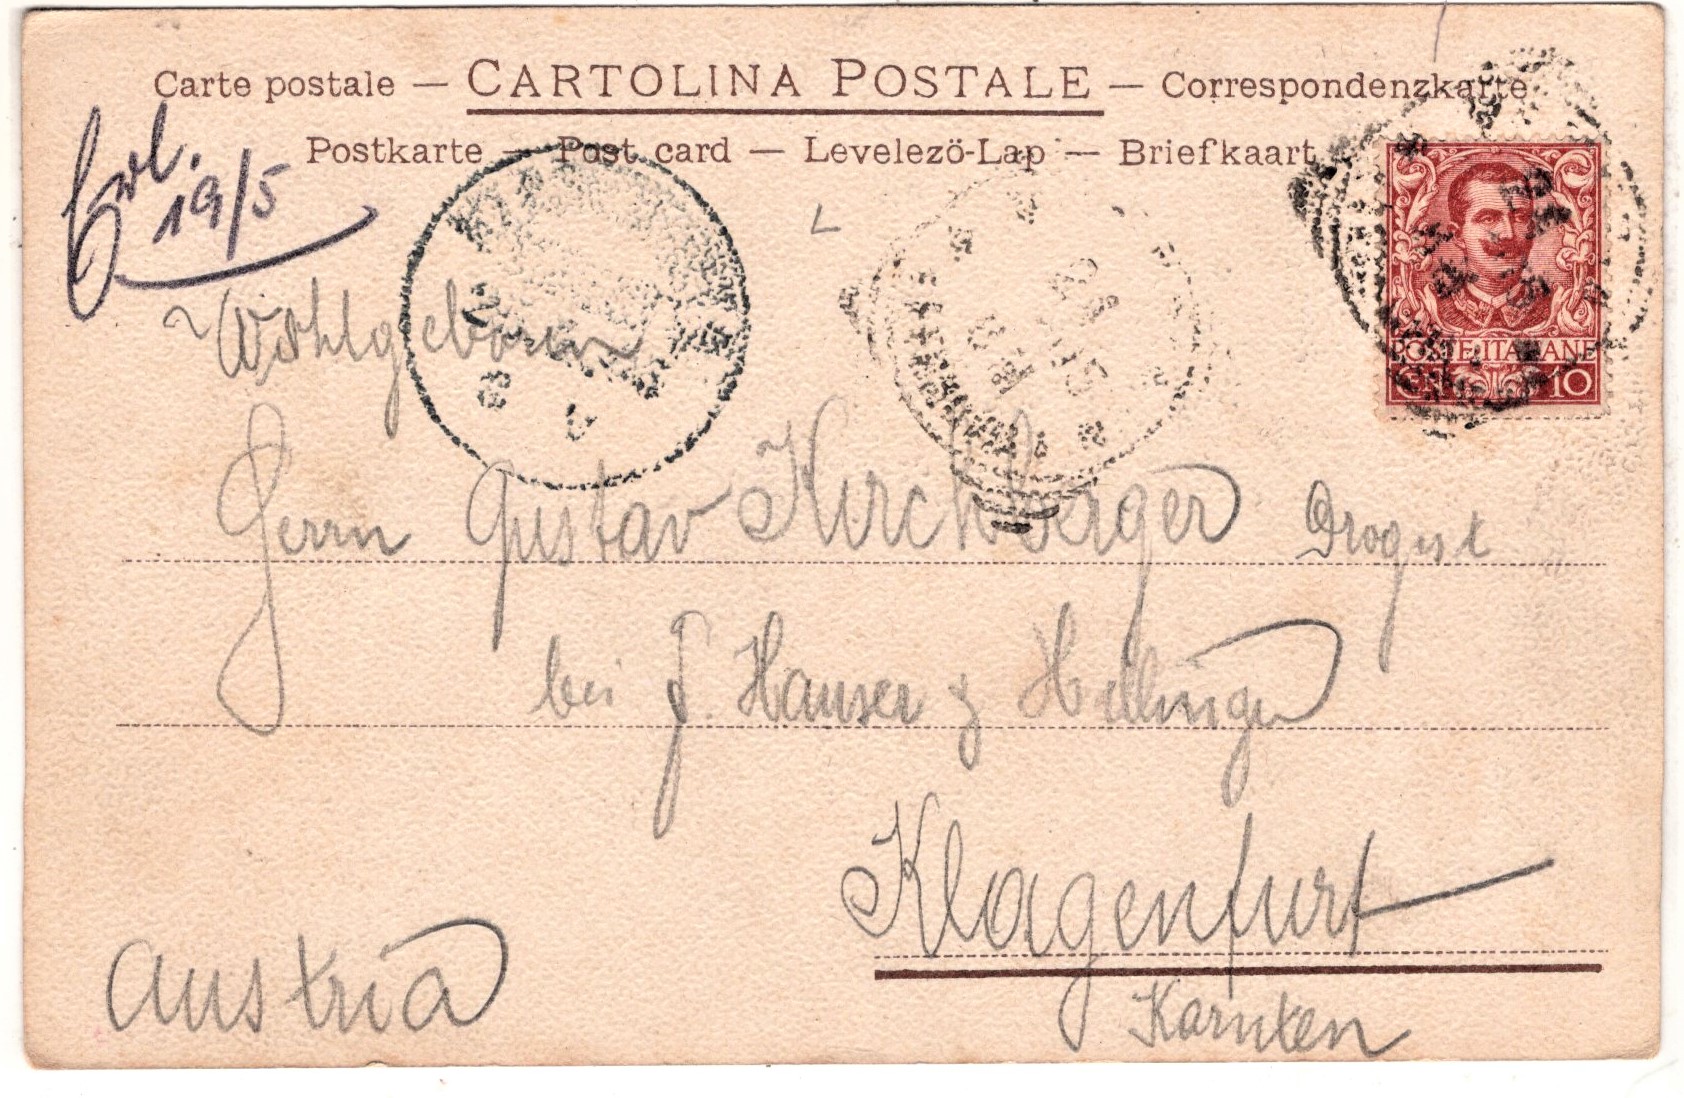 Carte postale — CARTOLINA POSTALE — Correspondenzkarte
Postkarte — Post card — Levelezö-Lap — Briefkaart
19/5
POSTE ITALIANE
10
Wohlgeboren
Herrn Gustav Kirchberger Drogist
bei J. Hauser & Hellinger
Klagenfurt
Kärnten
Austria